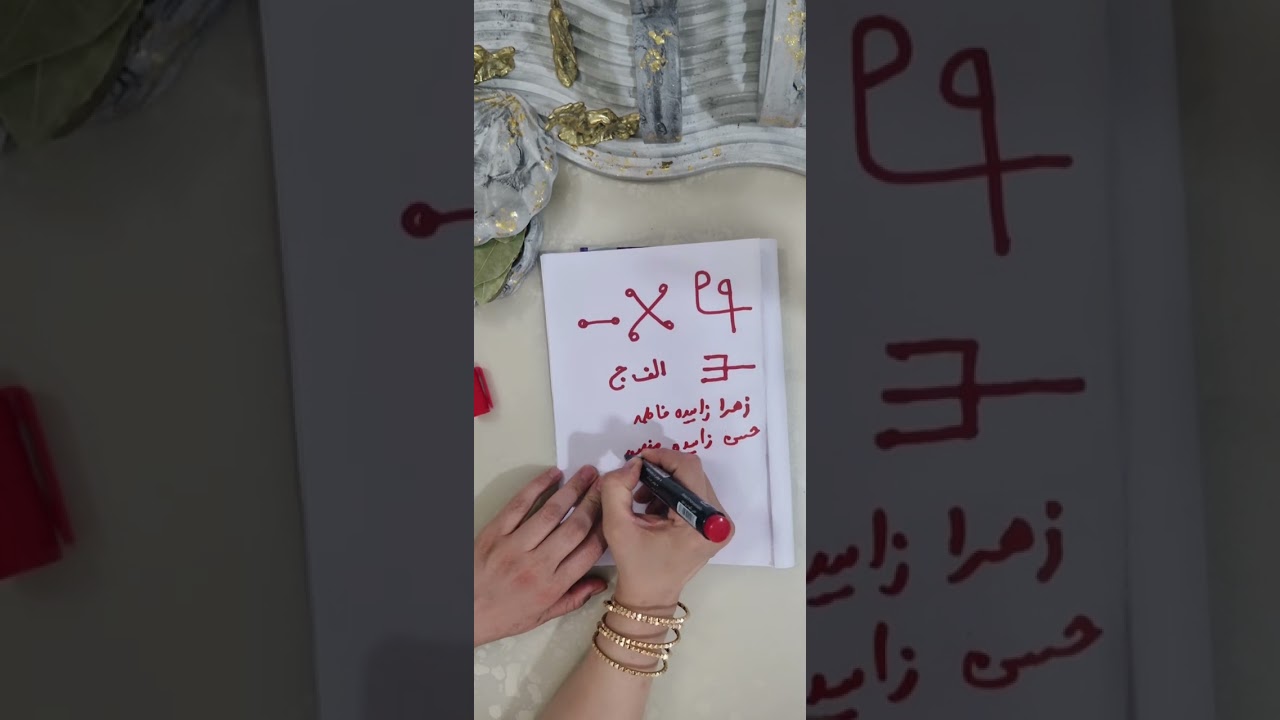 الف ج
زهرا زاییده فاطمه
حسن زاییده